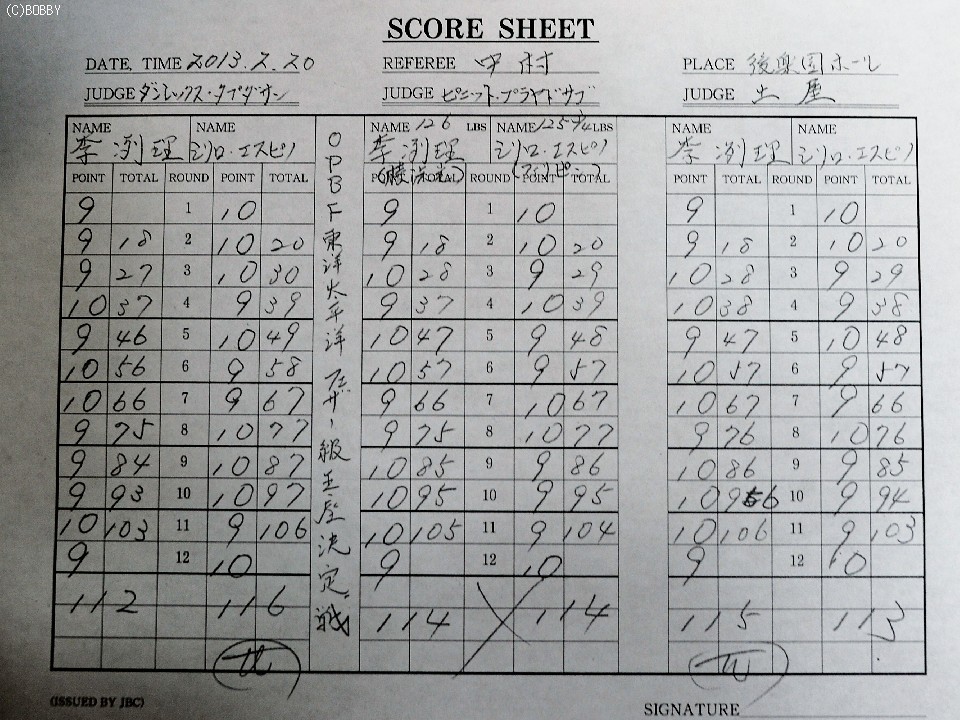 (C)BOBBY
SCORE SHEET
DATE, TIME 2013.2.20 REFEREE 中村 PLACE 後楽園ホール
JUDGE JUDGE ピニット・プラヤドサブ JUDGE 土屋
NAME NAME NAME 126 LBS NAME 125 3/4 LBS NAME NAME
李 冽理 シリロ・エスピノ 李 冽理 シリロ・エスピノ 李 冽理 シリロ・エスピノ
POINT TOTAL ROUND POINT TOTAL POINT TOTAL ROUND POINT TOTAL POINT TOTAL ROUND POINT TOTAL
9 1 10 9 1 10 9 1 10
9 18 2 10 20 9 18 2 10 20 9 18 2 10 20
9 27 3 10 30 10 28 3 9 29 10 28 3 9 29
10 37 4 9 39 9 37 4 10 39 10 38 4 9 38
9 46 5 10 49 10 47 5 9 48 9 47 5 10 48
10 56 6 9 58 10 57 6 9 57 10 57 6 9 57
10 66 7 9 67 9 66 7 10 67 10 67 7 9 66
9 75 8 10 77 9 75 8 10 77 9 76 8 10 76
9 84 9 10 87 10 85 9 9 86 10 86 9 9 85
9 93 10 10 97 10 95 10 9 95 10 96 10 9 94
10 103 11 9 106 10 105 11 9 104 10 106 11 9 103
9 12 10 9 12 10 9 12 10
112 116 114 114 115 113
OPBF東洋太平洋フェザー級王座決定戦
(ISSUED BY JBC) SIGNATURE